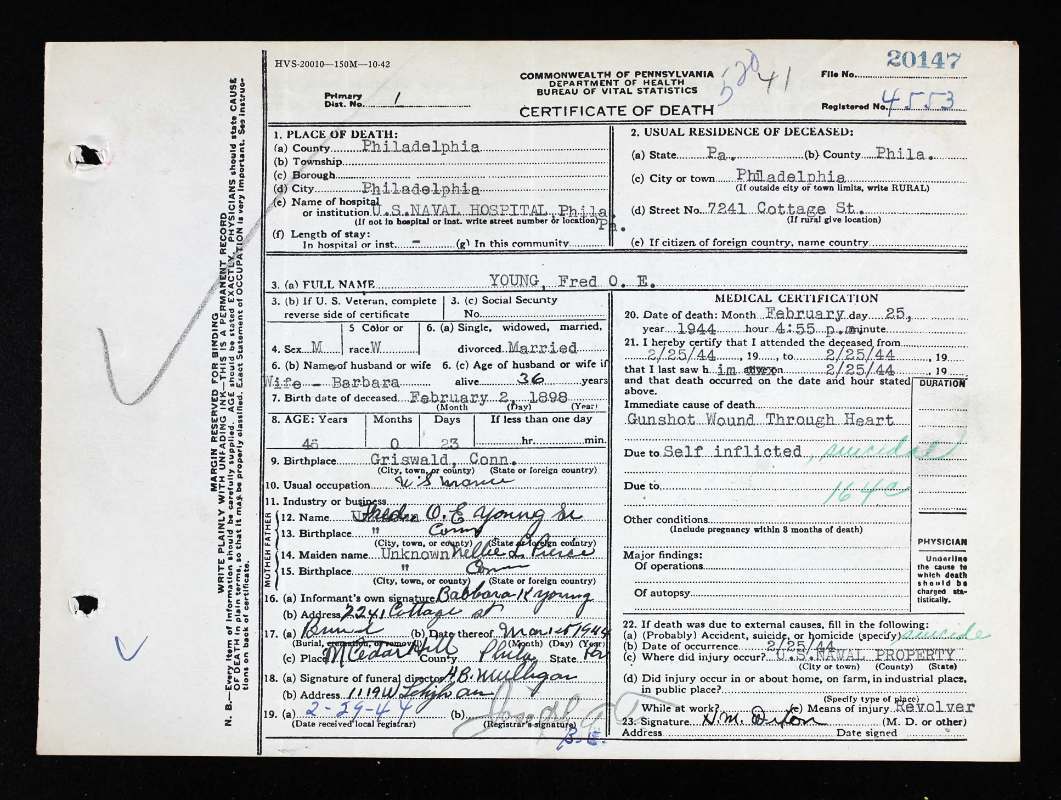 HVS-20010—150M—10-42
COMMONWEALTH OF PENNSYLVANIA
DEPARTMENT OF HEALTH
BUREAU OF VITAL STATISTICS
CERTIFICATE OF DEATH
520 41
20147
File No.
Registered No. 4553
Primary
Dist. No. 1
MARGIN RESERVED FOR BINDING
WRITE PLAINLY WITH UNFADING INK—THIS IS A PERMANENT RECORD
N. B.—Every item of information should be carefully supplied. AGE should be stated EXACTLY. PHYSICIANS should state CAUSE
OF DEATH in plain terms, so that it may be properly classified. Exact Statement of OCCUPATION is very important. See instruc-
tions on back of certificate.
1. PLACE OF DEATH:
(a) County Philadelphia
(b) Township
(c) Borough
(d) City Philadelphia
(e) Name of hospital
or institution U.S.NAVAL HOSPITAL, Phila.
(If not in hospital or inst. write street number or location) Pa.
(f) Length of stay:
In hospital or inst. - (g) In this community
2. USUAL RESIDENCE OF DECEASED:
(a) State Pa. (b) County Phila.
(c) City or town Philadelphia
(If outside city or town limits, write RURAL)
(d) Street No. 7241 Cottage St.
(If rural give location)
(e) If citizen of foreign country, name country
3. (a) FULL NAME YOUNG, Fred O. E.
3. (b) If U. S. Veteran, complete
reverse side of certificate
3. (c) Social Security
No.
4. Sex M
5 Color or
race W
6. (a) Single, widowed, married,
divorced Married
6. (b) Name of husband or wife
Wife - Barbara
6. (c) Age of husband or wife if
alive 36 years
7. Birth date of deceased February 2, 1898
(Month) (Day) (Year)
8. AGE: Years Months Days If less than one day
46 0 23 hr. min.
9. Birthplace Griswald, Conn.
(City, town, or county) (State or foreign country)
10. Usual occupation U S Marine
11. Industry or business
FATHER
12. Name Fred O. E Young Sr
13. Birthplace " Conn
(City, town, or county) (State or foreign country)
MOTHER
14. Maiden name Unknown Nellie L Pierce
15. Birthplace " Conn
(City, town, or county) (State or foreign country)
16. (a) Informant's own signature Babbara K Young
(b) Address 7241 Cottage st
17. (a) (b) Date thereof Mar 1944
(Burial, cremation, or removal) (Month) (Day) (Year)
(c) Place M Cedar Hill County Phila State Pa
18. (a) Signature of funeral director H B. Mulligan
(b) Address 1119 W Lehigh av
19. (a) 2-29-44 (b)
(Date received local registrar) (Registrar's signature)
MEDICAL CERTIFICATION
20. Date of death: Month February day 25,
year 1944 hour 4:55 p.m. minute
21. I hereby certify that I attended the deceased from
2/25/44, 19, to 2/25/44, 19
that I last saw h im alive on 2/25/44, 19
and that death occurred on the date and hour stated
above.
DURATION
Immediate cause of death
Gunshot Wound Through Heart
Due to Self inflicted, suicidal
Due to 164c
Other conditions
(Include pregnancy within 3 months of death)
Major findings:
Of operations
Of autopsy
PHYSICIAN
Underline
the cause to
which death
should be
charged sta-
tistically.
22. If death was due to external causes, fill in the following:
(a) (Probably) Accident, suicide, or homicide (specify) suicide
(b) Date of occurrence 2/25/44
(c) Where did injury occur? U.S.NAVAL PROPERTY
(City or town) (County) (State)
(d) Did injury occur in or about home, on farm, in industrial place,
in public place?
(Specify type of place)
While at work? (e) Means of injury Revolver
23. Signature (M. D. or other)
Address Date signed